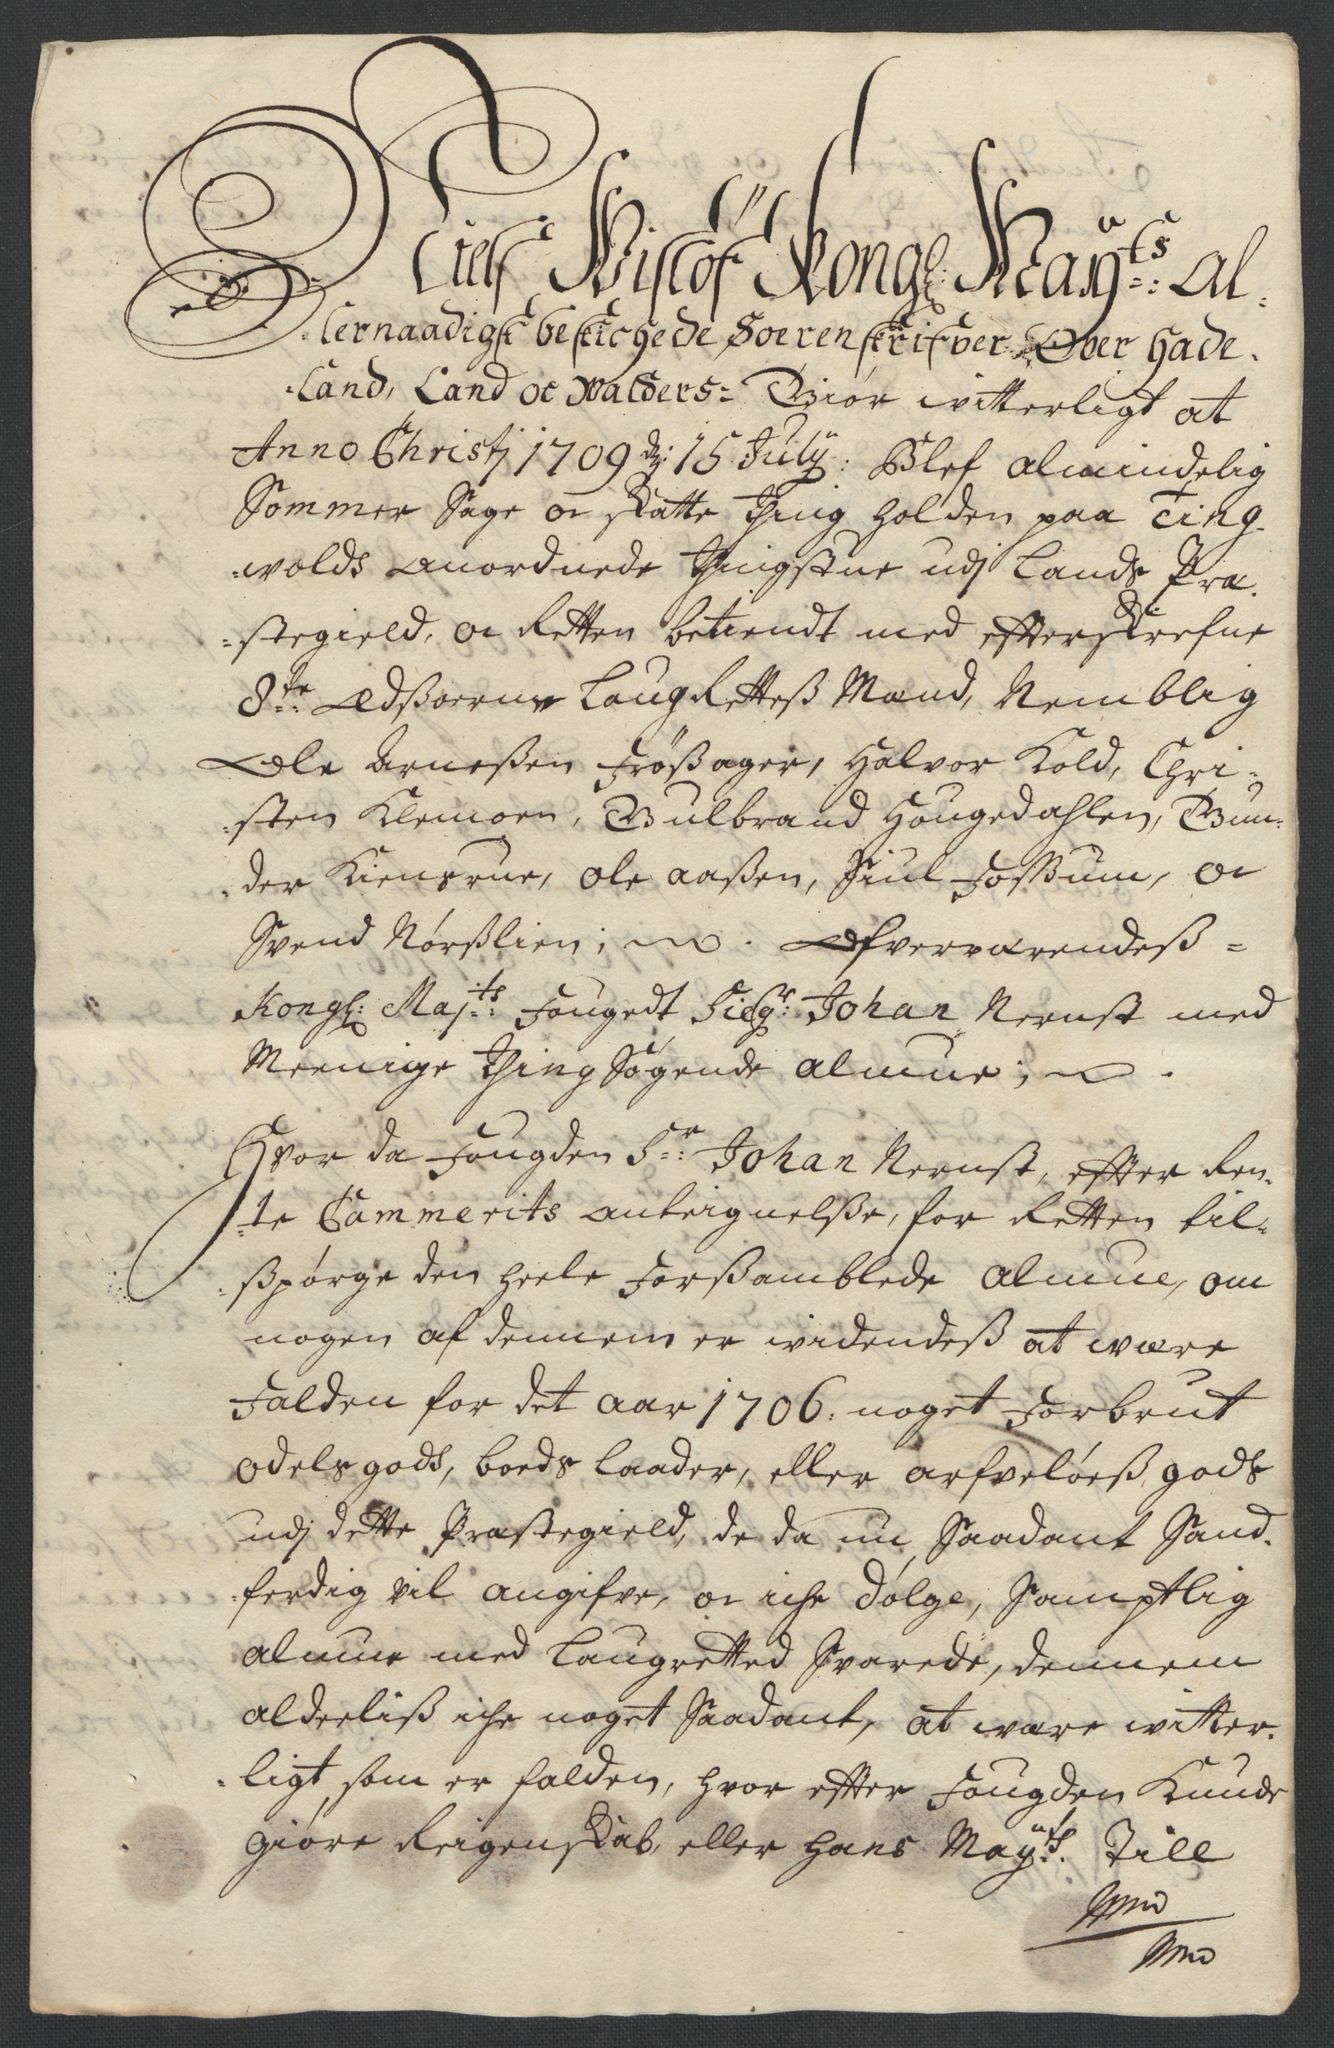 Niels Wislöf Kongl: Mayts: Al-
-lernaadigst bestichede Soerenskrifver Over Hade-
-land, Land oc Walders- Giør witterligt at
Anno Christj 1709 d: 15 Julij: Blef almindelig
Sommer Sage oc skatte Ting holden paa Ting-
-wolds anordnede Tingstue udj Lands Præ-
-stegield, oc Retten betiendt med efterskrefne
8te Edsoerne LaugRettes Mænd, Nemblig
Ole Arneßen Frößager, Halvor Kold, Chri-
-sten Klemoen, Gulbrand Hougedahlen, Gun-
-der Kiensrue, Ole Aaßen, Siul Foßum, oc
Svend Nørßlien; Ofverværendeß-
Kongl: Majts: Fougedt Sigr: Johan Nernst med
Meenige Ting Søgende Almue;
Hvor da Fougden Sr: Johan Nernst, efter Ren-
-te Cammerits anteignelße, for Retten til-
-spørge den heele Forßamblede Almue, om
nogen af dennem er widendeß at være
Falden for det Aar 1706. noget Forbrut
odelsgods, boeds laader, eller arfveløeß gods
udj dette Præstegield, de da nu Saadant Sand-
-ferdig vil angifve, oc iche dølge, Samptlig
Almue med Laugretted Svarede, dennem
alderliß iche noget Saadant, at være witter-
-ligt, som er falden, hvor efter Fougden Kunde
giøre Reigenskab, eller hans Mayts: Till